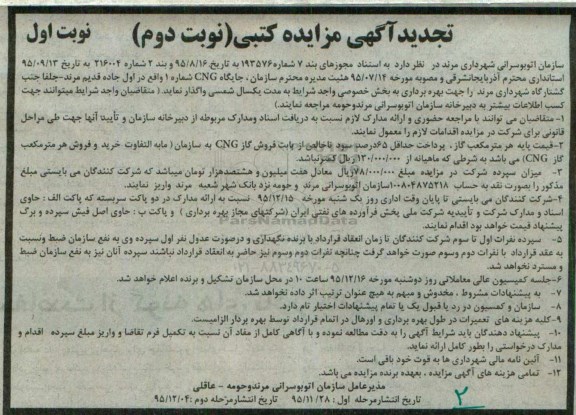 تجدیدآگهی مزایده کتبی(نوبت دوم) نوبت اول
سازمان اتوبوسرانی شهرداری مرند در نظر دارد به استناد مجوزهای بند ۷ شماره۱۹۳۵۷۶ به تاریخ ۹۵/۸/۱۶ و بند ۲ شماره ۲۱۶۰۰۴ به تاریخ ۹۵/۰۹/۱۳
استانداری محترم آذربایجانشرقی و مصوبه مورخه ۹۵/۰۷/۱۴ هیئت مدیره محترم سازمان ، جایگاه CNG شماره ۱ واقع در اول جاده قدیم مرند-جلفا جنب
گشتارگاه شهرداری مرند را جهت بهره برداری به بخش خصوصی واجد شرایط به مدت یکسال شمسی واگذار نماید.( متقاضیان واجد شرایط میتوانند جهت
کسب اطلاعات بیشتر به دبیرخانه سازمان اتوبوسرانی مرندوحومه مراجعه نمایند.)
۱-متقاضیان می توانند با مراجعه حضوری و ارائه مدارک لازم نسبت به دریافت اسناد ومدارک مربوطه از دبیرخانه سازمان و تأیید آنها جهت طی مراحل
قانونی برای شرکت در مزایده اقدامات لازم را معمول نمایند.
۲-قیمت پایه هر مترمکعب گاز، پرداخت حداقل ۶۵درصد سود ناخالص از بابت فروش گاز CNG به سازمان ( مابه التفاوت خرید و فروش هر مترمکعب
گاز CNG) می باشد به شرطی که ماهیانه از ۱۳۰/۰۰۰/۰۰۰ ریال کمتر نباشد.
۳- میزان سپرده شرکت در مزایده مبلغ ۷۸/۰۰۰/۰۰۰ریال معادل هفت میلیون و هشتصدهزار تومان میباشد که شرکت کنندگان می بایستی مبلغ
مذکور را بصورت نقد به حساب ۱۰۰۸۰۴۸۷۵۲۱۸سازمان اتوبوسرانی مرند و حومه نزد بانک شهر شعبه مرند واریز نمایند.
۴-شرکت کنندگان می بایستی تا پایان وقت اداری روز یک شنبه مورخه ۹۵/۱۲/۱۵ نسبت به ارائه مدارک در دو پاکت سربسته که پاکت الف : حاوی
اسناد و مدارک شرکت و تأییدیه شرکت ملی پخش فرآورده های نفتی ایران (شرکتهای مجاز بهره برداری ) و پاکت ب : حاوی اصل فیش سپرده و برگ
پیشنهاد قیمت خواهد بود اقدام نمایند.
۵- سپرده نفرات اول تا سوم شرکت کنندگان تا زمان انعقاد قرارداد با برنده نگهداری و درصورت عدول نفر اول سپرده وی به نفع سازمان ضبط ونسبت
به عقد قرارداد با نفرات دوم وسوم صورت خواهد گرفت چنانچه نفرات دوم وسوم نیز حاضر به انعقاد قرارداد نباشند سپرده آنان نیز به نفع سازمان ضبط
و مسترد نخواهد شد.
۶-جلسه کمیسیون عالی معاملاتی روز دوشنبه مورخه ۹۵/۱۲/۱۶ ساعت ۱۰ در محل سازمان تشکیل و برنده اعلام خواهد شد.
۷- به پیشنهادات مشروط ، مخدوش و مبهم به هیچ عنوان ترتیب اثر داده نخواهد شد.
۸- سازمان و کمسیون در رد یا قبول یک یا تمام پیشنهادات اختیار تام دارد.
۹-کلیه هزینه های تعمیرات در طول بهره برداری و اورهال در اتمام قرارداد توسط بهره بردار الزامیست.
۱۰- پیشنهاد دهندگان باید شرایط آگهی را به دقت مطالعه نموده و با آگاهی کامل از مفاد آن نسبت به تکمیل فرم تقاضا و واریز مبلغ سپرده اقدام و
مدارک درخواستی را بطور کامل ارائه نماید.
۱۱- آئین نامه مالی شهرداری ها به قوت خود باقی است.
۱۲- تمامی هزینه های آگهی مزایده ، بعهده برنده مزایده می باشد.
مدیرعامل سازمان اتوبوسرانی مرندوحومه - عاقلی
تاریخ انتشارمرحله اول : ۹۵/۱۱/۲۸ تاریخ انتشارمرحله دوم :۹۵/۱۲/۰۴
۲